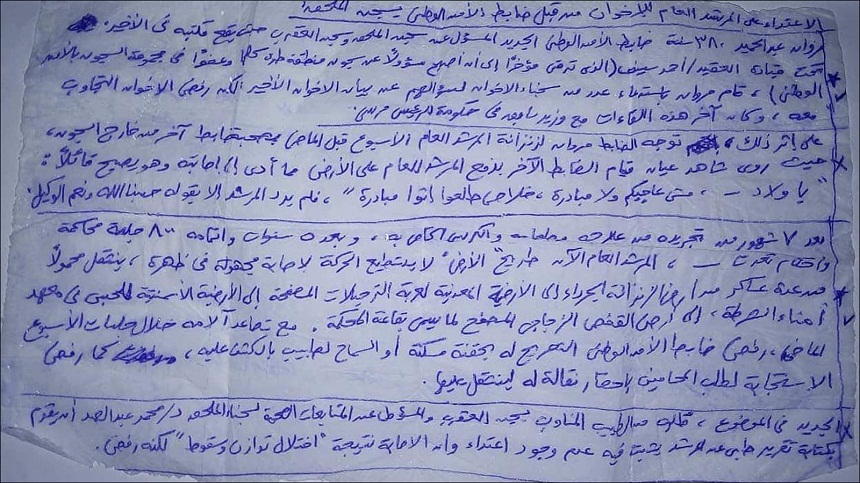 الاعتداء على المرشد العام للإخوان من قبل ضابط الأمن الوطني بسجن الملحق
مروان عبد الحميد ٣٨ سنة ضابط الأمن الوطني الجديد المسؤول عن سجن الملحق وسجن العقرب حيث يقع مكتبه في الأخير.
تحت قيادة العقيد/ أحمد سيف (الذي ترقى مؤخراً إلى أن أصبح مسؤولاً عن سجون منطقة طرة كلها وعضواً في مجموعة السجون بالأمن
الوطني)، قام مروان باستدعاء عدد من سجناء الإخوان لسؤالهم عن بيان الإخوان الأخير لكن رفض الإخوان التجاوب
معه، وكان آخر هذه اللقاءات مع وزير سابق في حكومة الرئيس مرسي.
على إثر ذلك توجه الضابط مروان لزنزانة المرشد العام الأسبوع قبل الماضي بصحبة ضابط آخر من خارج السجون،
حيث روى شاهد عيان قيام الضابط الآخر بدفع المرشد العام على الأرض مما أدى إلى إصابته وهو يصيح قائلاً:
"يا ولاد ـــ ، مش عاجبكم ولا مبادرة، خلاص طالعوا انتوا مبادرة"، فلم يرد المرشد إلا بقوله حسبنا الله ونعم الوكيل.
بعد ٧ شهور من تجريده من علاجه وملابسه والكرسي الخاص به، وبعد ٥ سنوات وانتهاء ٨٠٠ جلسة محاكمة
وأحكام تعدت ـــ ، المرشد العام الآن طريح "الأرض" لا يستطيع الحركة لإصابة مجهولة في ظهره، ينتقل محمولاً
من عدة عساكر من أرض الزنزانة الجرداء إلى الأرضية المعدنية لعربة الترحيلات المصفحة إلى الأرضية الأسمنتية للحبس في معهد
أمناء الشرطة، إلى أرض القفص الزجاجي المصفح لما يسمى بقاعة المحكمة. مع تصاعد آلامه خلال جلسات الأسبوع
الماضي، رفض ضابط الأمن الوطني التصريح له بحقنة مسكنة أو السماح لطبيب بالكشف عليه، كما رفض
الاستجابة لطلب المحامين بإحضار نقالة له لينتقل عليها.
الجديد في الموضوع، طلب من الطبيب المناوب بسجن العقرب والمسؤول عن المتابعات الصحية لسجناء الملحق د/ محمد عبد الصمد أن يقوم
بكتابة تقرير طبي عن المرشد يثبت فيه عدم وجود اعتداء وأن الإصابة نتيجة "اختلال توازن وسقوط" لكنه رفض.